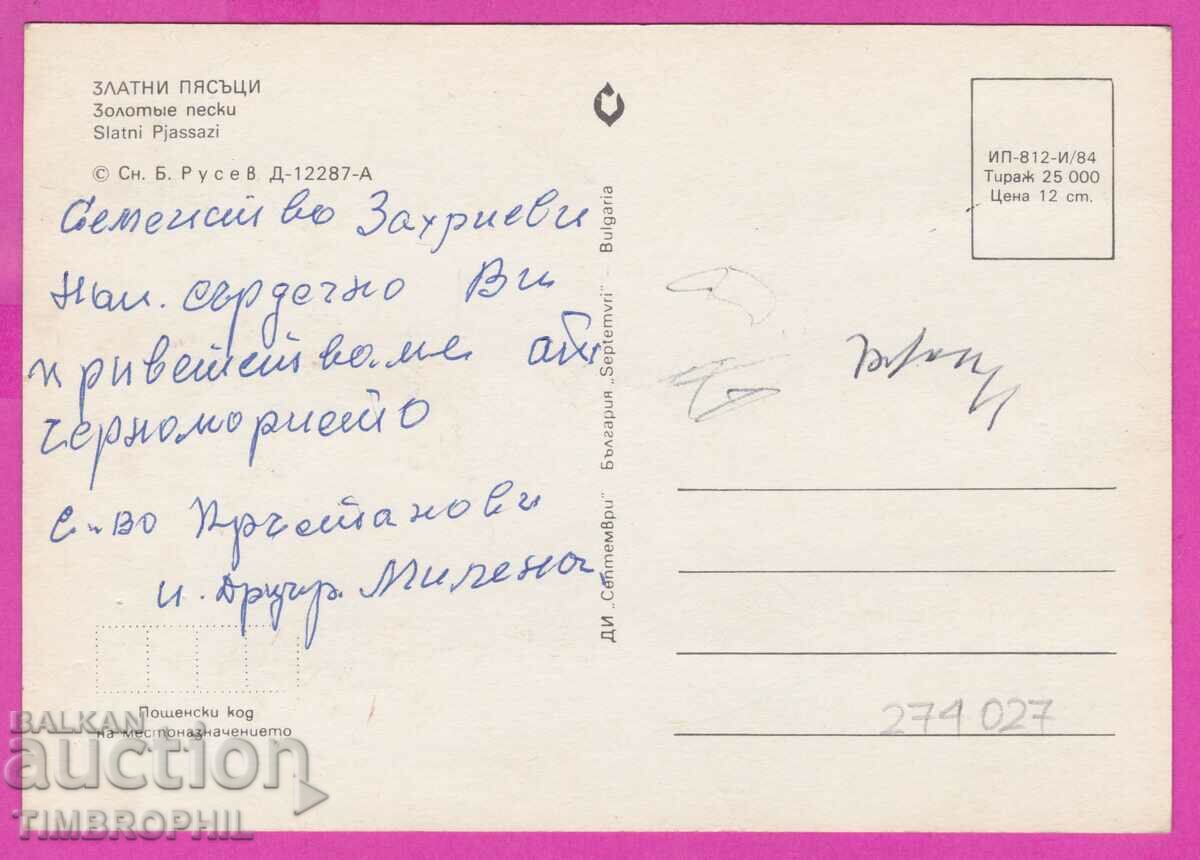 ЗЛАТНИ ПЯСЪЦИ
Золотые пески
Slatni Pjassazi
© Сн. Б. Русев Д-12287-А
Семейство Захриеви
Най. сърдечно Ви
приветстваме от
черноморието
С-во Кръстанови
и. Милена
Пощенски код
на местоназначението
ДИ „Септември" България „Septemvri" – Bulgaria
ИП-812-И/84
Тираж 25 000
Цена 12 ст.
274 027
BALKAN
auction
TIMBROPHIL